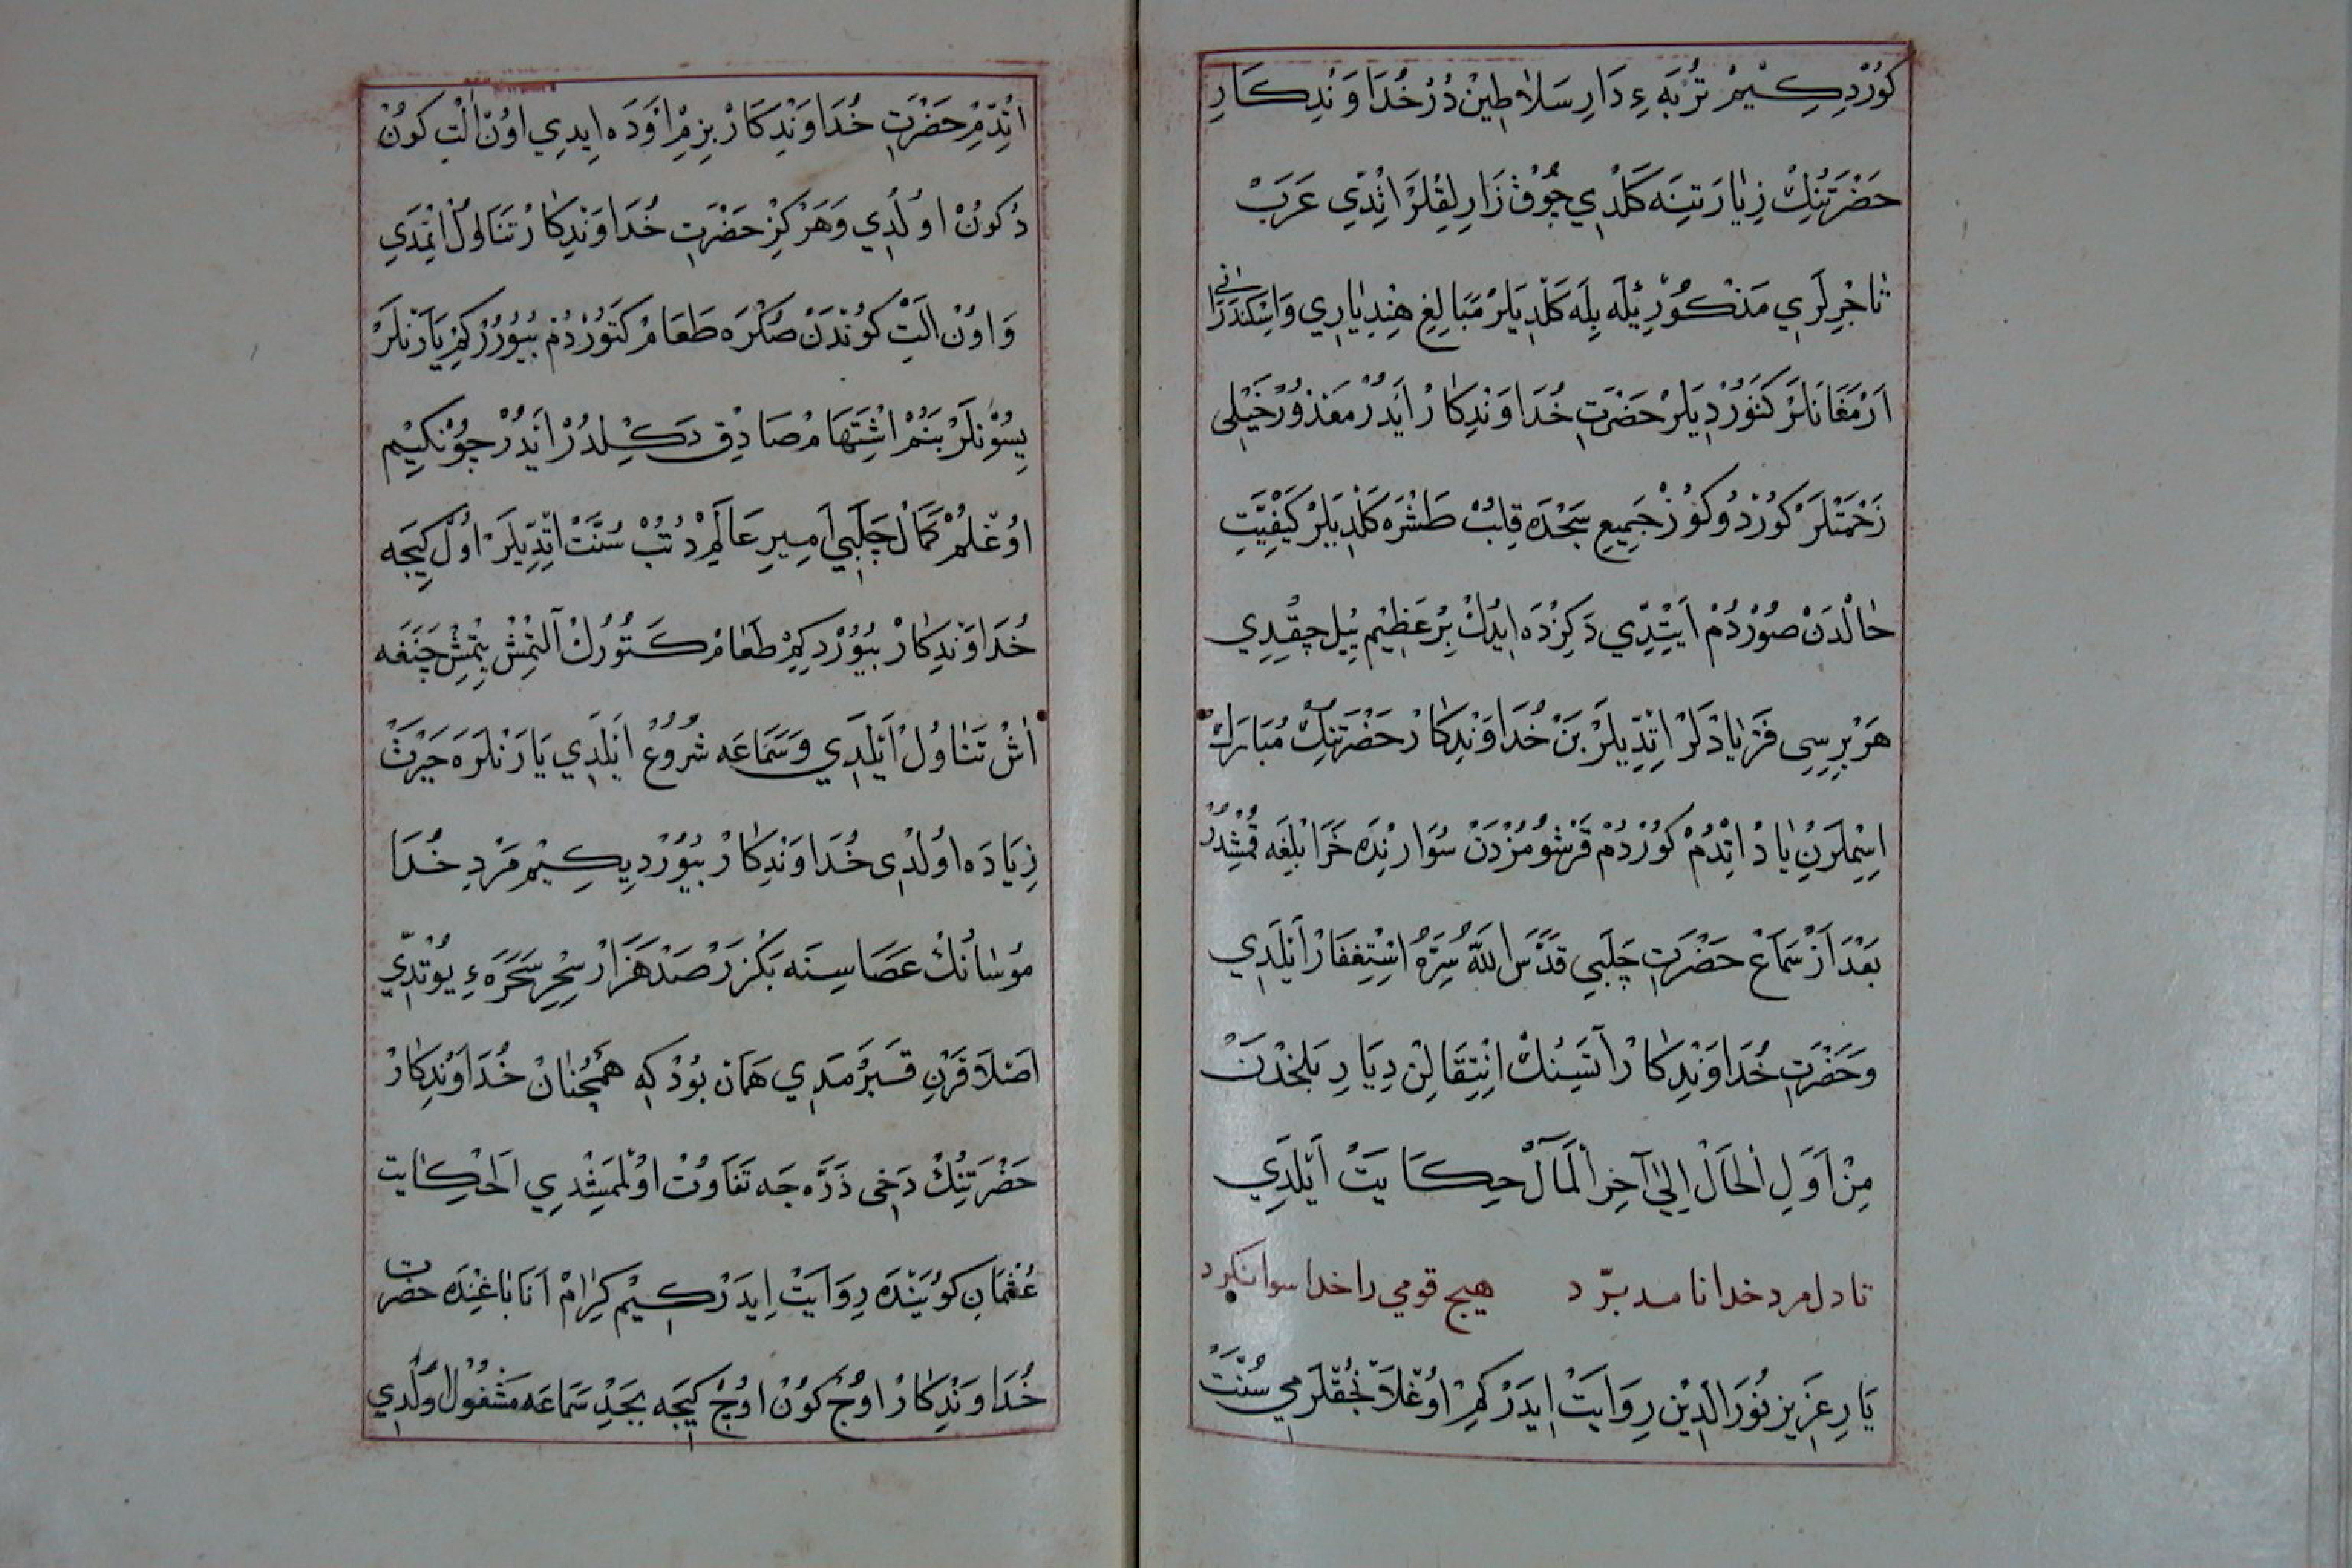 كُورْدِكِيمْ تُرْبَهءِ دَارِ سَلَاطِينْ دُرْ خُدَاوَنْدِكَارِ
حَضْرَتِنِكْ زِيَارَتِنَه كَلْدِي چُوقْ زَارِلِقْلَرْ اتْدِّي عَرَبْ
تَاجِرْلَرِي مَذْكُورْ ئِيلَه بِلَه كَلْدِيلَرْ مَبَالِغِ هِنْدِبَارِي وَاسْكَنْدَرَانِي
اَرْمَغَانْلَرْ كَتُورْدِيلَرْ حَضْرَتِ خُدَاوَنْدِكَارْ اَيْدُرْ مَعْذُورْ خَيْلِي
زَحْمَتْلَرْ كُورْدُوكُوزْ جَمِيعِ سَجْدَه قِلِبْ طَشْرَه كَلْدِيلَرْ كَيْفِيَّتِ
حَالْدَنْ صُورْدُمْ اَيْتِدِّي دَكِزْدَه ايدُكْ بِرْ عَظِيمْ يِيلْ چِقْدِي
هَرْ بِرِسِي فَرْيَادْلَرْ اِتْدِّيلَرْ بَنْ خُدَاوَنْدِكَارْ حَضْرَتِنِكْ مُبَارَكْ
اِسْمِلَرِنْ يَادْ اتْدُمْ كُورْدُمْ قَرْشُومُزْدَنْ سُوَارِنْدَه خَرَابْلِغَه
بَعْدَ اَزْ سَمَاعْ حَضْرَتِ چَلَبِي قَدَّسَ اللّٰهُ سِرَّهُ اسْتِغْفَارْ اَيْلَدِي
وَحَضْرَتِ خُدَاوَنْدِكَارْ اَتَسِنِكْ اِنْتِقَالِنْ دِيَارِ بَلْخْدَنْ
مِنْ اَوَّلِ الْحَالْ اِلَى آخِرِ الْمَآلْ حِكَايَتْ اَيْلَدِي
تا دل مرد خدا نامد بدرد هيچ قومي را خدا رسوا نكرد
يَارِ عَزِيزْ نُورَ الدِّينْ رِوَايَتْ اِيدَرْ كِمْ اوُغْلَانْجُقْلَرْمِي سُنَّتْ
اتْدِّمْ حَضْرَتِ خُدَاوَنْدِكَارْ بِزِمْ اَوْدَه ايدِي اوُنْ اَلْتِ كُونْ
دُكُونْ اوُلْدِي وَهَرْكِزْ حَضْرَتِ خُدَاوَنْدِكَارْ تَنَاوُلْ اتْمَدِي
وَاوُنْ اَلْتِ كُونْدَنْ صُكْرَه طَعَامْ كَتُورْدُمْ بُيُورْدِكِمْ يَارَنْلَرْ
يِسُونْلَرْ بَنُمْ اشْتِهَامْ صَادِقْ دَكِلْدُرْ اَيْدُرْ چُونْكِيمْ
اوُغْلُمْ كَمَالْ چَلَبِي اَمِيرِ عَالَمْ دُتُبْ سُنَّتْ اتْدِّيلَرْ اوُلْ كِيجَه
خُدَاوَنْدِكَارْ بُيُورْدِكِمْ طَعَامْ كَتُورُكْ اَلْتْمِشْ يِتْمِشْ چَنَغَه
اٰشْ تَنَاوُلْ اَيْلَدِي وَسَمَاعَه شُرُوعْ اَيْلَدِي يَارَنْلَرَه حَيْرَتْ
زِيَادَه اوُلْدِي خُدَاوَنْدِكَارْ بُيُورْدِيكِيمْ مَرْدِ خُدَا
مُوسَانُكْ عَصَاسِنَه بَكْزَرْ صَدْ هَزَارْ سِحْرِ سَحَرَهءِ يُوتْدِّي
اَصْلَا قَرْنِ قَبَرْمَدِي هَمَانْ بُودْكِه هَمْچُنَانْ خُدَاوَنْدِكَارْ
حَضْرَتِنُكْ دَخِي ذَرَّه جَه تَفَاوُتْ اوُلْمَمِشْدِي اَلْحِكَايَتْ
عُثْمَانِ كُويَنْدَه رِوَايَتْ اِيدَرْكِيمْ كِرَامْ اَنَا بَاغِنْدَه حضرت
خُدَاوَنْدِكَارْ اوُچْ كُونْ اوُچْ كِيجَه بِجَدِّ سَمَاعَه مَشْغُولْ اوُلْدِي